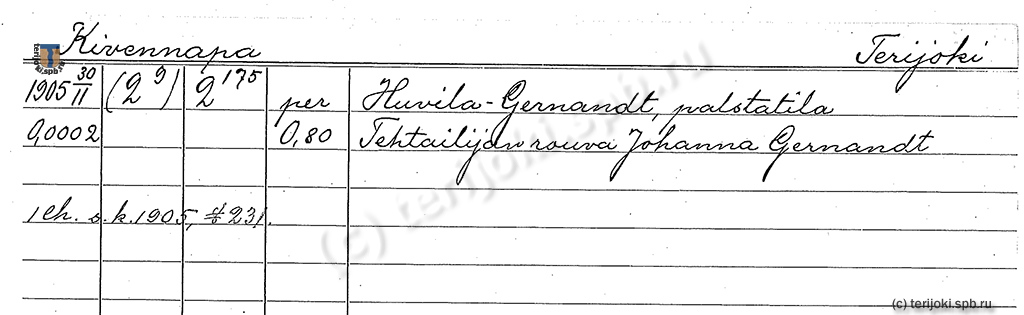 Kivennapa Terijoki
1905 30/11 (2⁹) 2¹⁷⁵ per Huvila-Gernandt, palstatila
0,0002 0,80 Tehtailijan rouva Johanna Gernandt
s.k. 1905, # 231.
terijoki.spb.ru
(c) terijoki.spb.ru
(c) terijoki.spb.ru